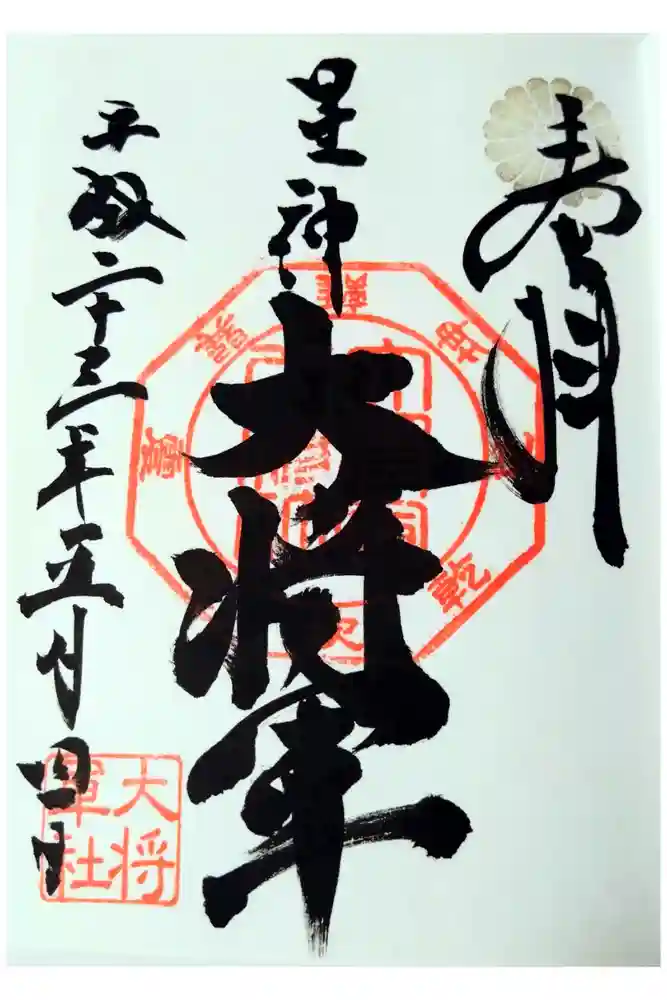 奉拝
星神
大将軍
平成二十三年五月四日
大将
軍社